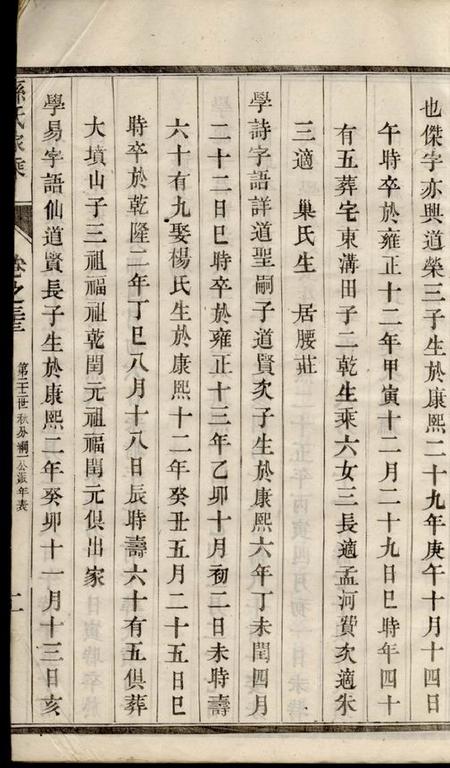 也傑字亦興道榮三子生於康熙二十九年庚午十月十四日
午時卒於雍正十二年甲寅十二月二十九日巳時年四十
有五葬宅東溝田子二乾生乘六女三長適孟河費次適朱
三適　巢氏生　居腰莊
學詩字語詳道聖嗣子道賢次子生於康熙六年丁未閏四月
二十二日巳時卒於雍正十三年乙卯十月初二日未時壽
六十有九娶楊氏生於康熙十二年癸丑五月二十五日巳
時卒於乾隆二年丁巳八月十八日辰時壽六十有五俱葬
大墳山子三祖福祖乾閏元祖福閏元俱出家
學易字語仙道賢長子生於康熙二年癸卯十一月十三日亥
孫氏家乘
卷之三
第三十二世秋分澗一公派年表
二